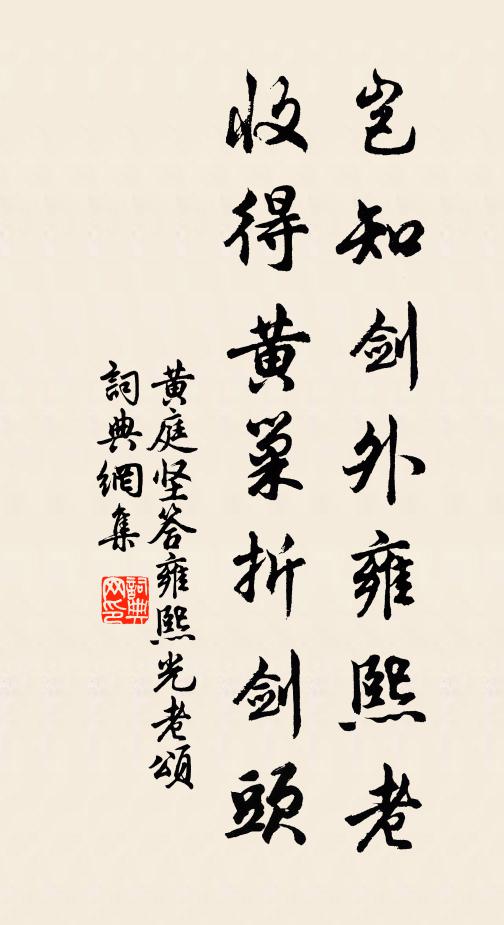 岂知剑外雍熙老
收得黄巢折剑頭
黄庭坚答雍熙光老頌
詞典網集
詞典